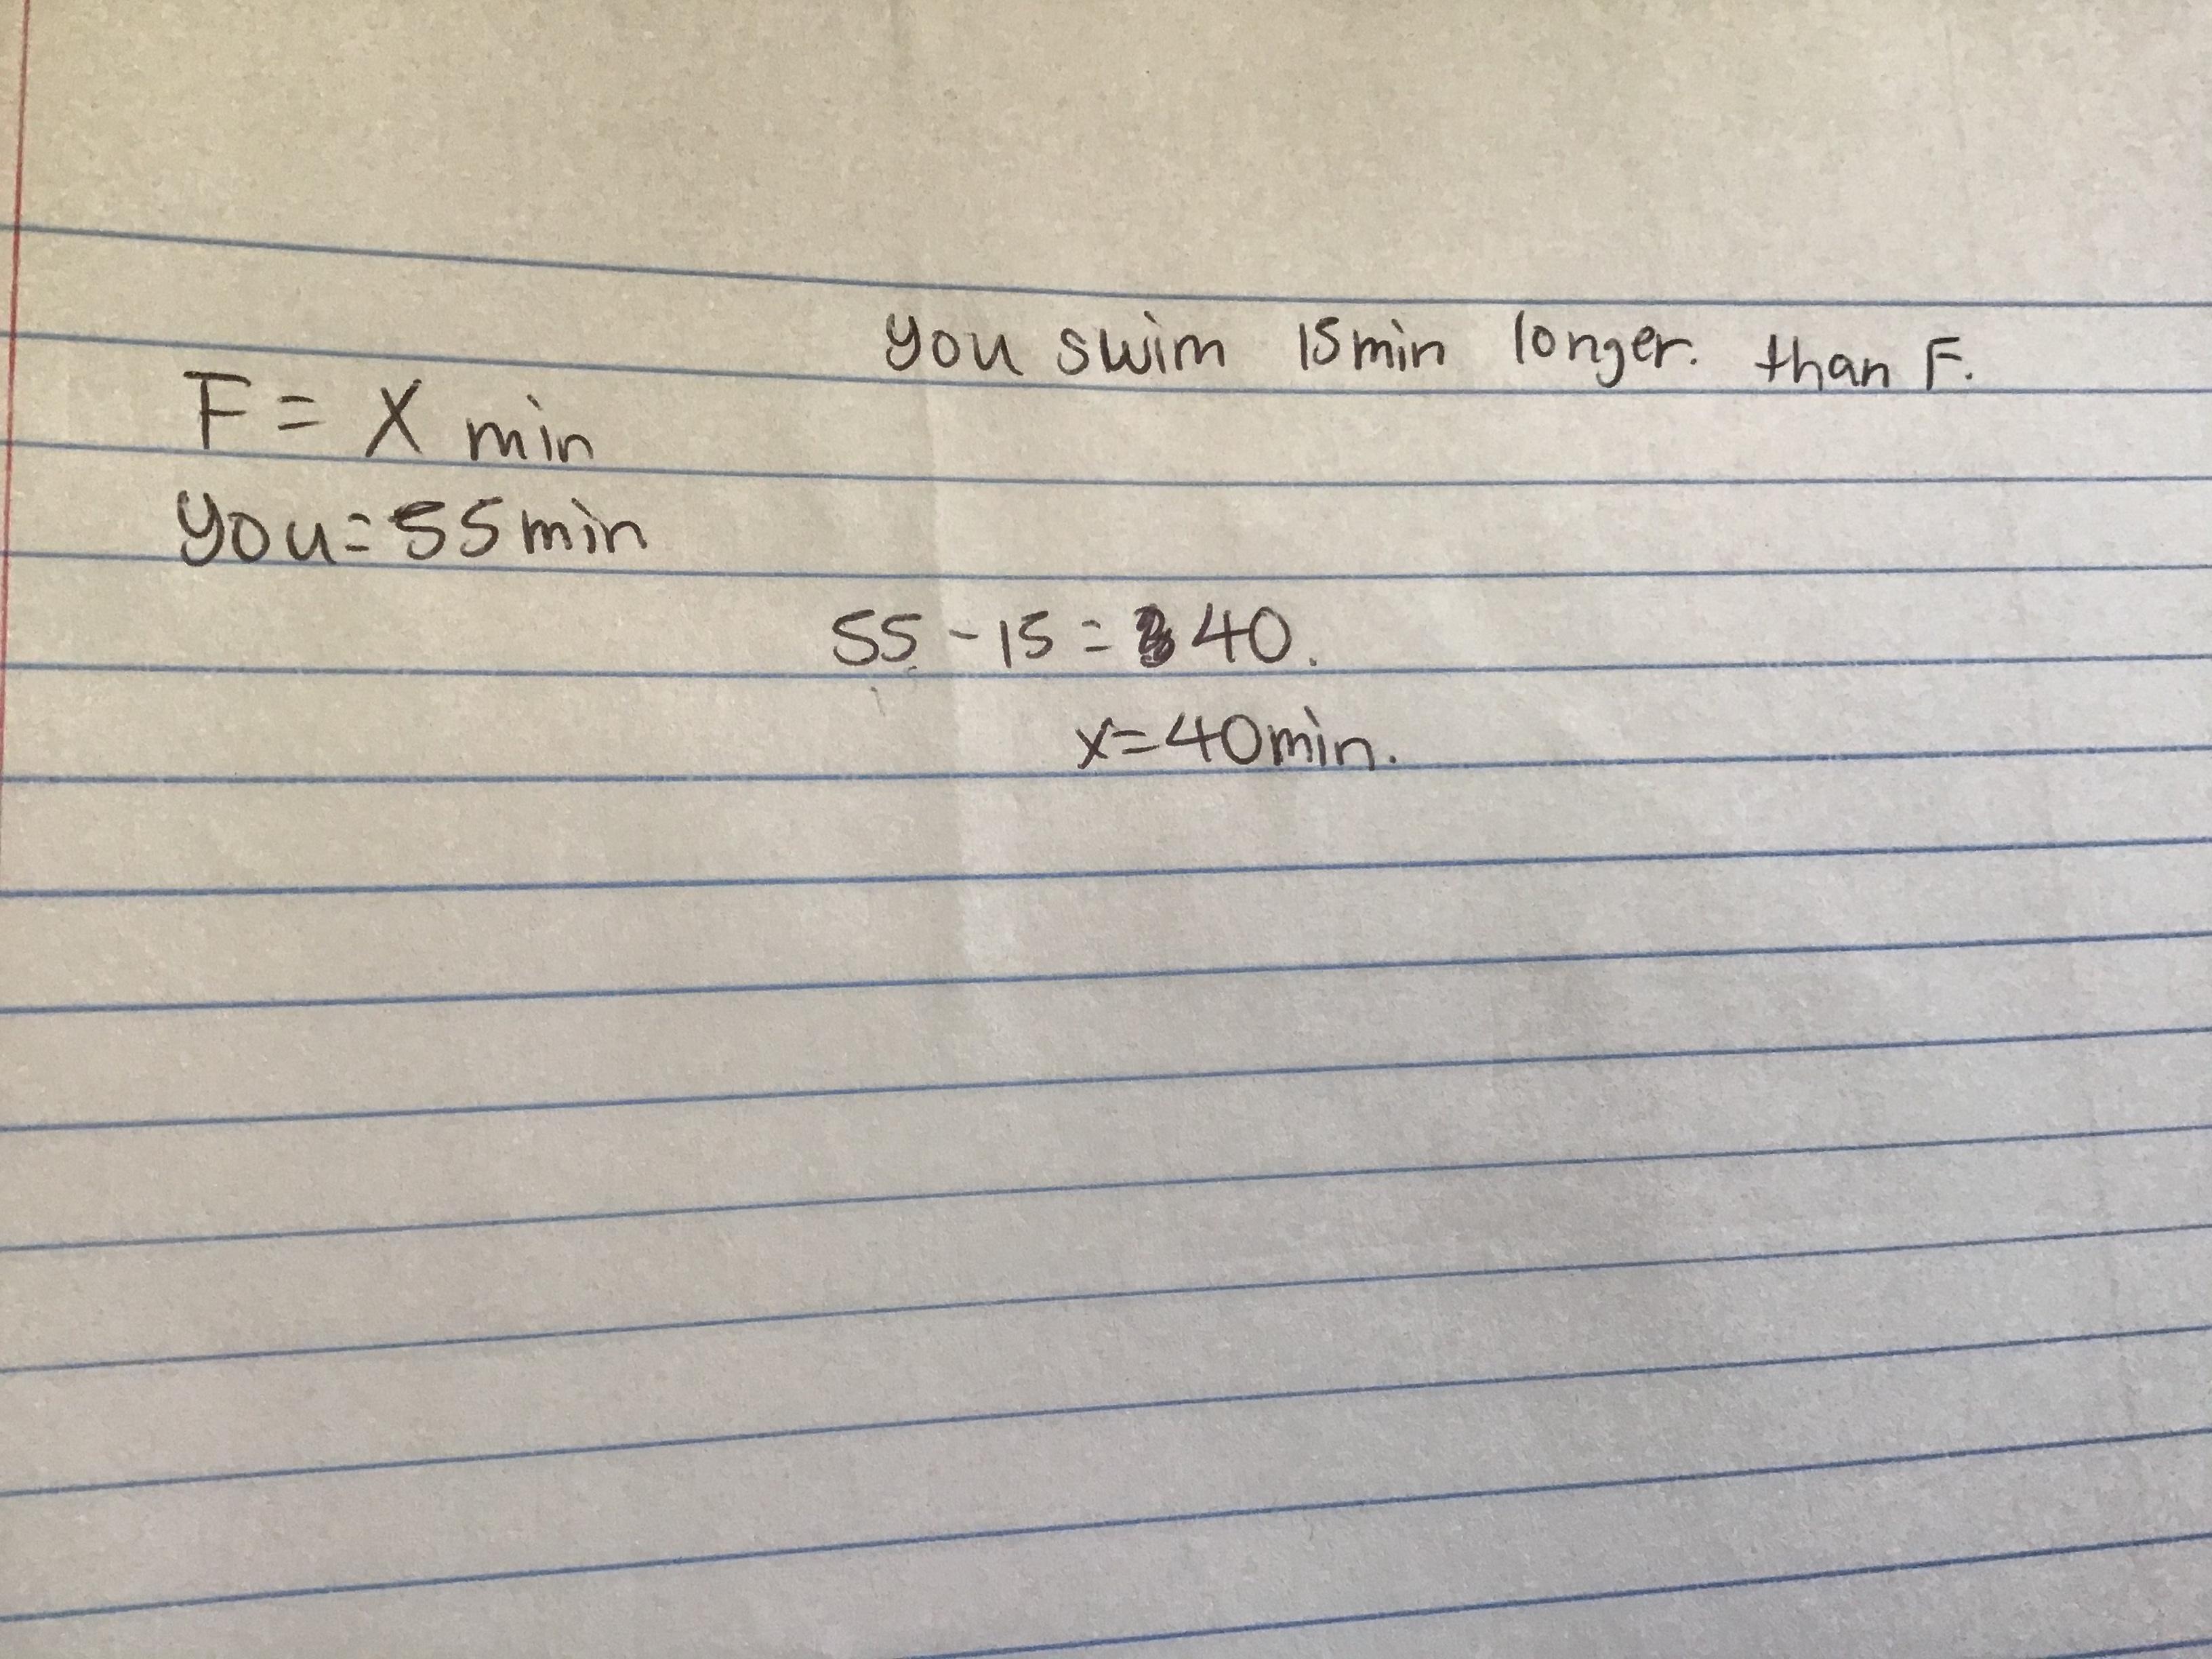 you swim 15min longer. than F.
F = X min
you = 55min
55 - 15 = 40.
x=40min.